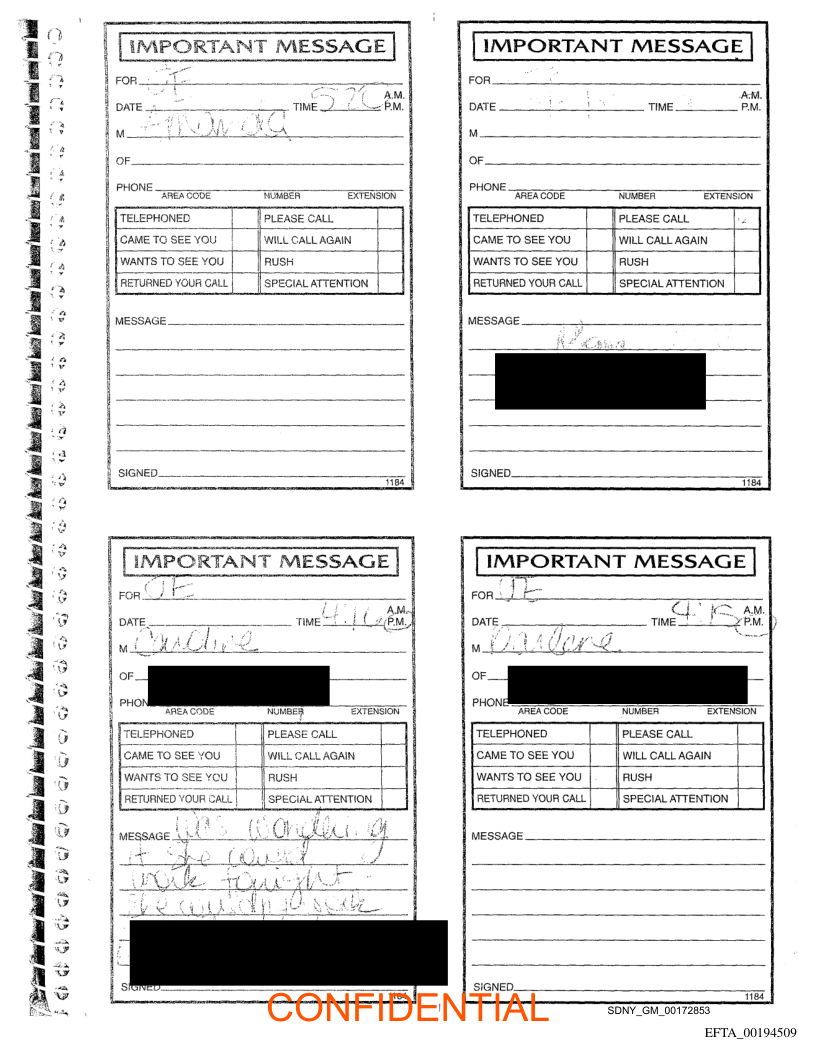 IMPORTANT MESSAGE
FOR JE
DATE TIME 5:20 A.M. P.M.
M Amanda
OF
PHONE
AREA CODE NUMBER EXTENSION
TELEPHONED PLEASE CALL
CAME TO SEE YOU WILL CALL AGAIN
WANTS TO SEE YOU RUSH
RETURNED YOUR CALL SPECIAL ATTENTION
MESSAGE
SIGNED
1184
IMPORTANT MESSAGE
FOR
DATE TIME A.M. P.M.
M
OF
PHONE
AREA CODE NUMBER EXTENSION
TELEPHONED PLEASE CALL
CAME TO SEE YOU WILL CALL AGAIN
WANTS TO SEE YOU RUSH
RETURNED YOUR CALL SPECIAL ATTENTION
MESSAGE
SIGNED
1184
IMPORTANT MESSAGE
FOR JE
DATE TIME 4:16 A.M. P.M.
M Caroline
OF
PHON
AREA CODE NUMBER EXTENSION
TELEPHONED PLEASE CALL
CAME TO SEE YOU WILL CALL AGAIN
WANTS TO SEE YOU RUSH
RETURNED YOUR CALL SPECIAL ATTENTION
MESSAGE Was wondering
if she could
work tonight
she
SIGNED
1184
IMPORTANT MESSAGE
FOR JE
DATE TIME 4:15 A.M. P.M.
M Darlene
OF
PHONE
AREA CODE NUMBER EXTENSION
TELEPHONED PLEASE CALL
CAME TO SEE YOU WILL CALL AGAIN
WANTS TO SEE YOU RUSH
RETURNED YOUR CALL SPECIAL ATTENTION
MESSAGE
SIGNED
1184
CONFIDENTIAL
SDNY_GM_00172853
EFTA_00194509